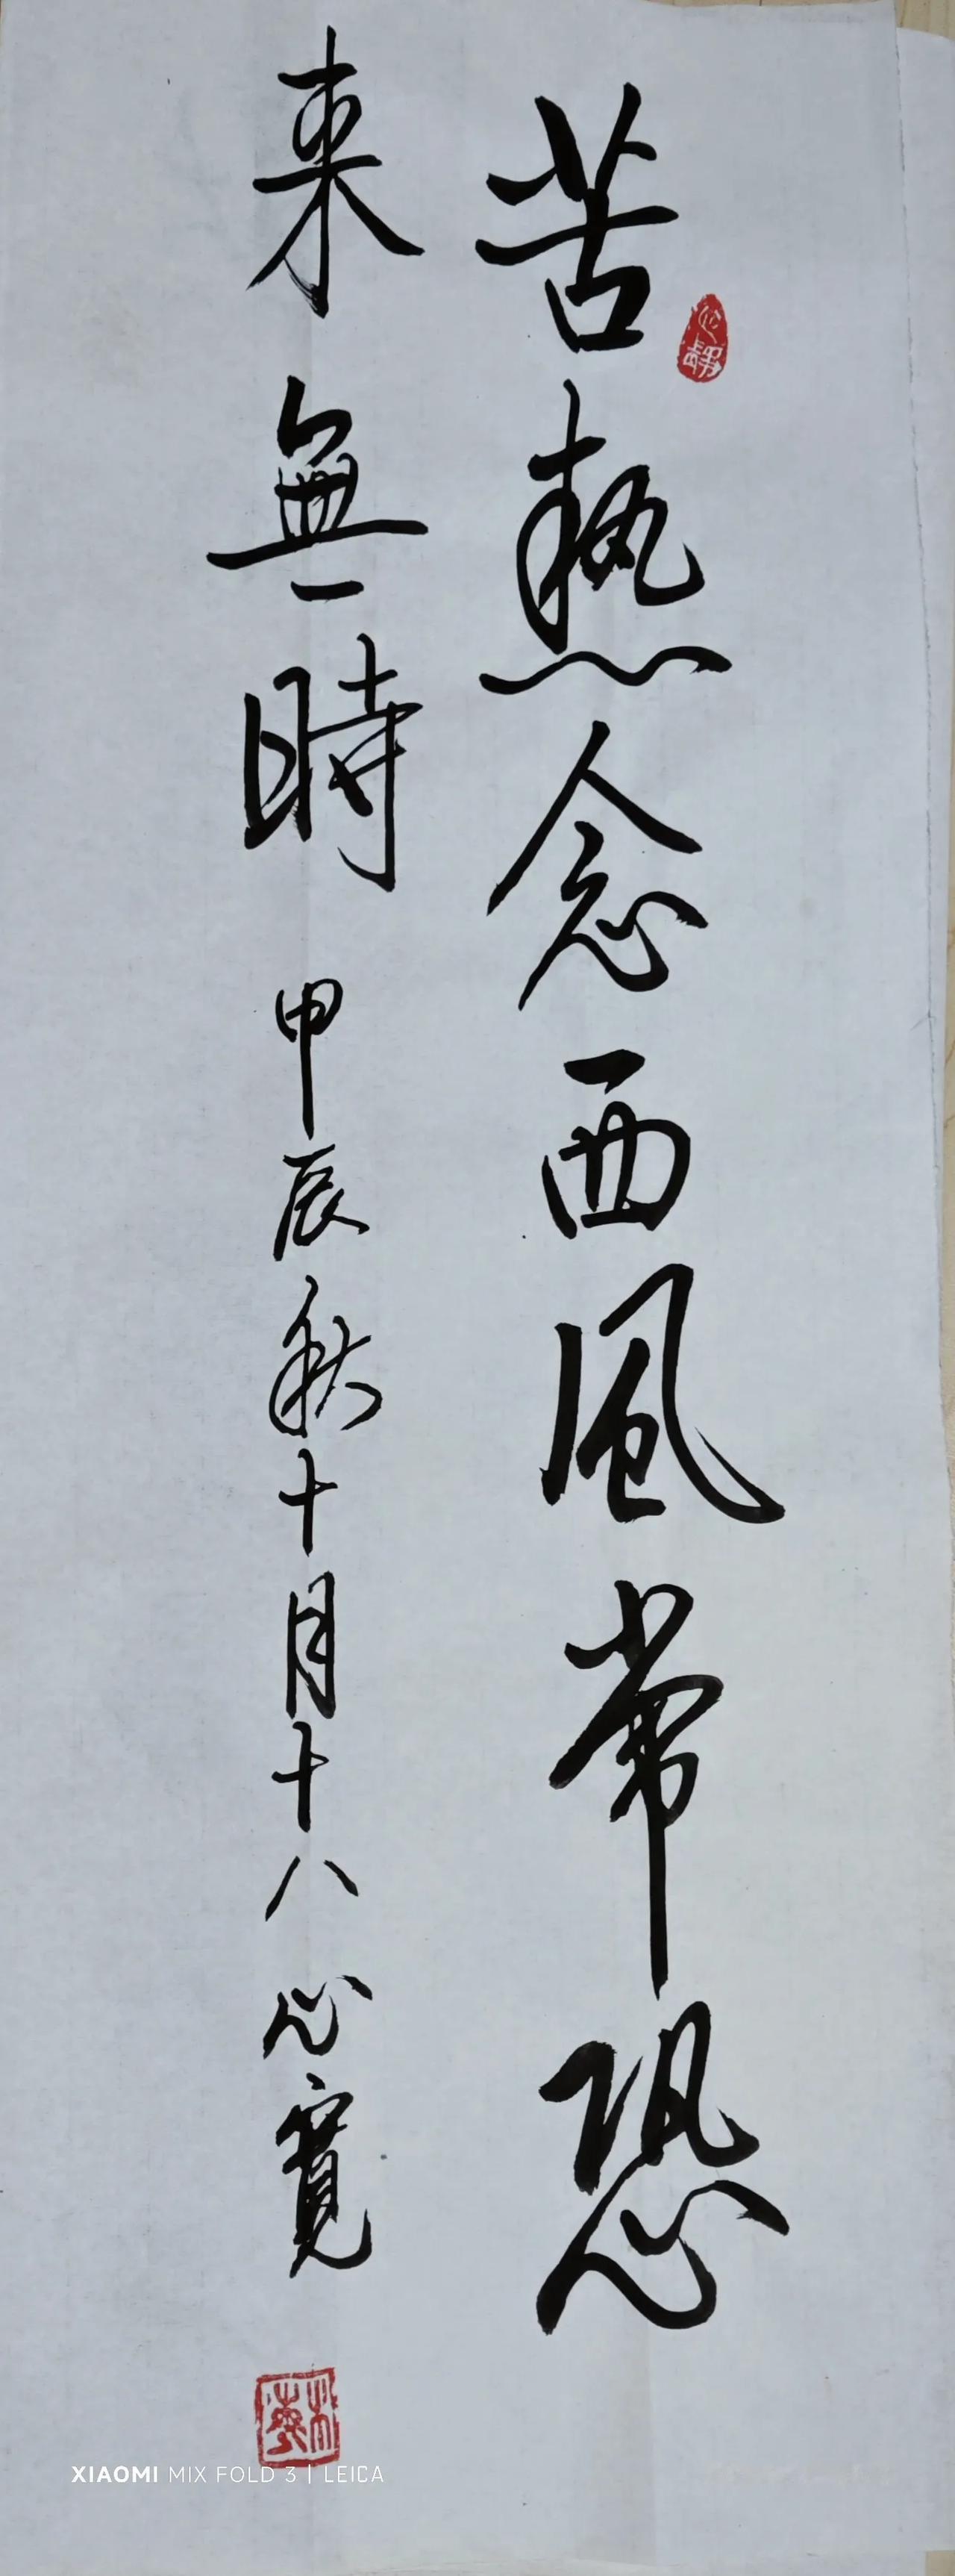 苦熱念西風常恐
来無時 甲辰秋十月十八 心寬
心静
XIAOMI MIX FOLD 3 | LEICA